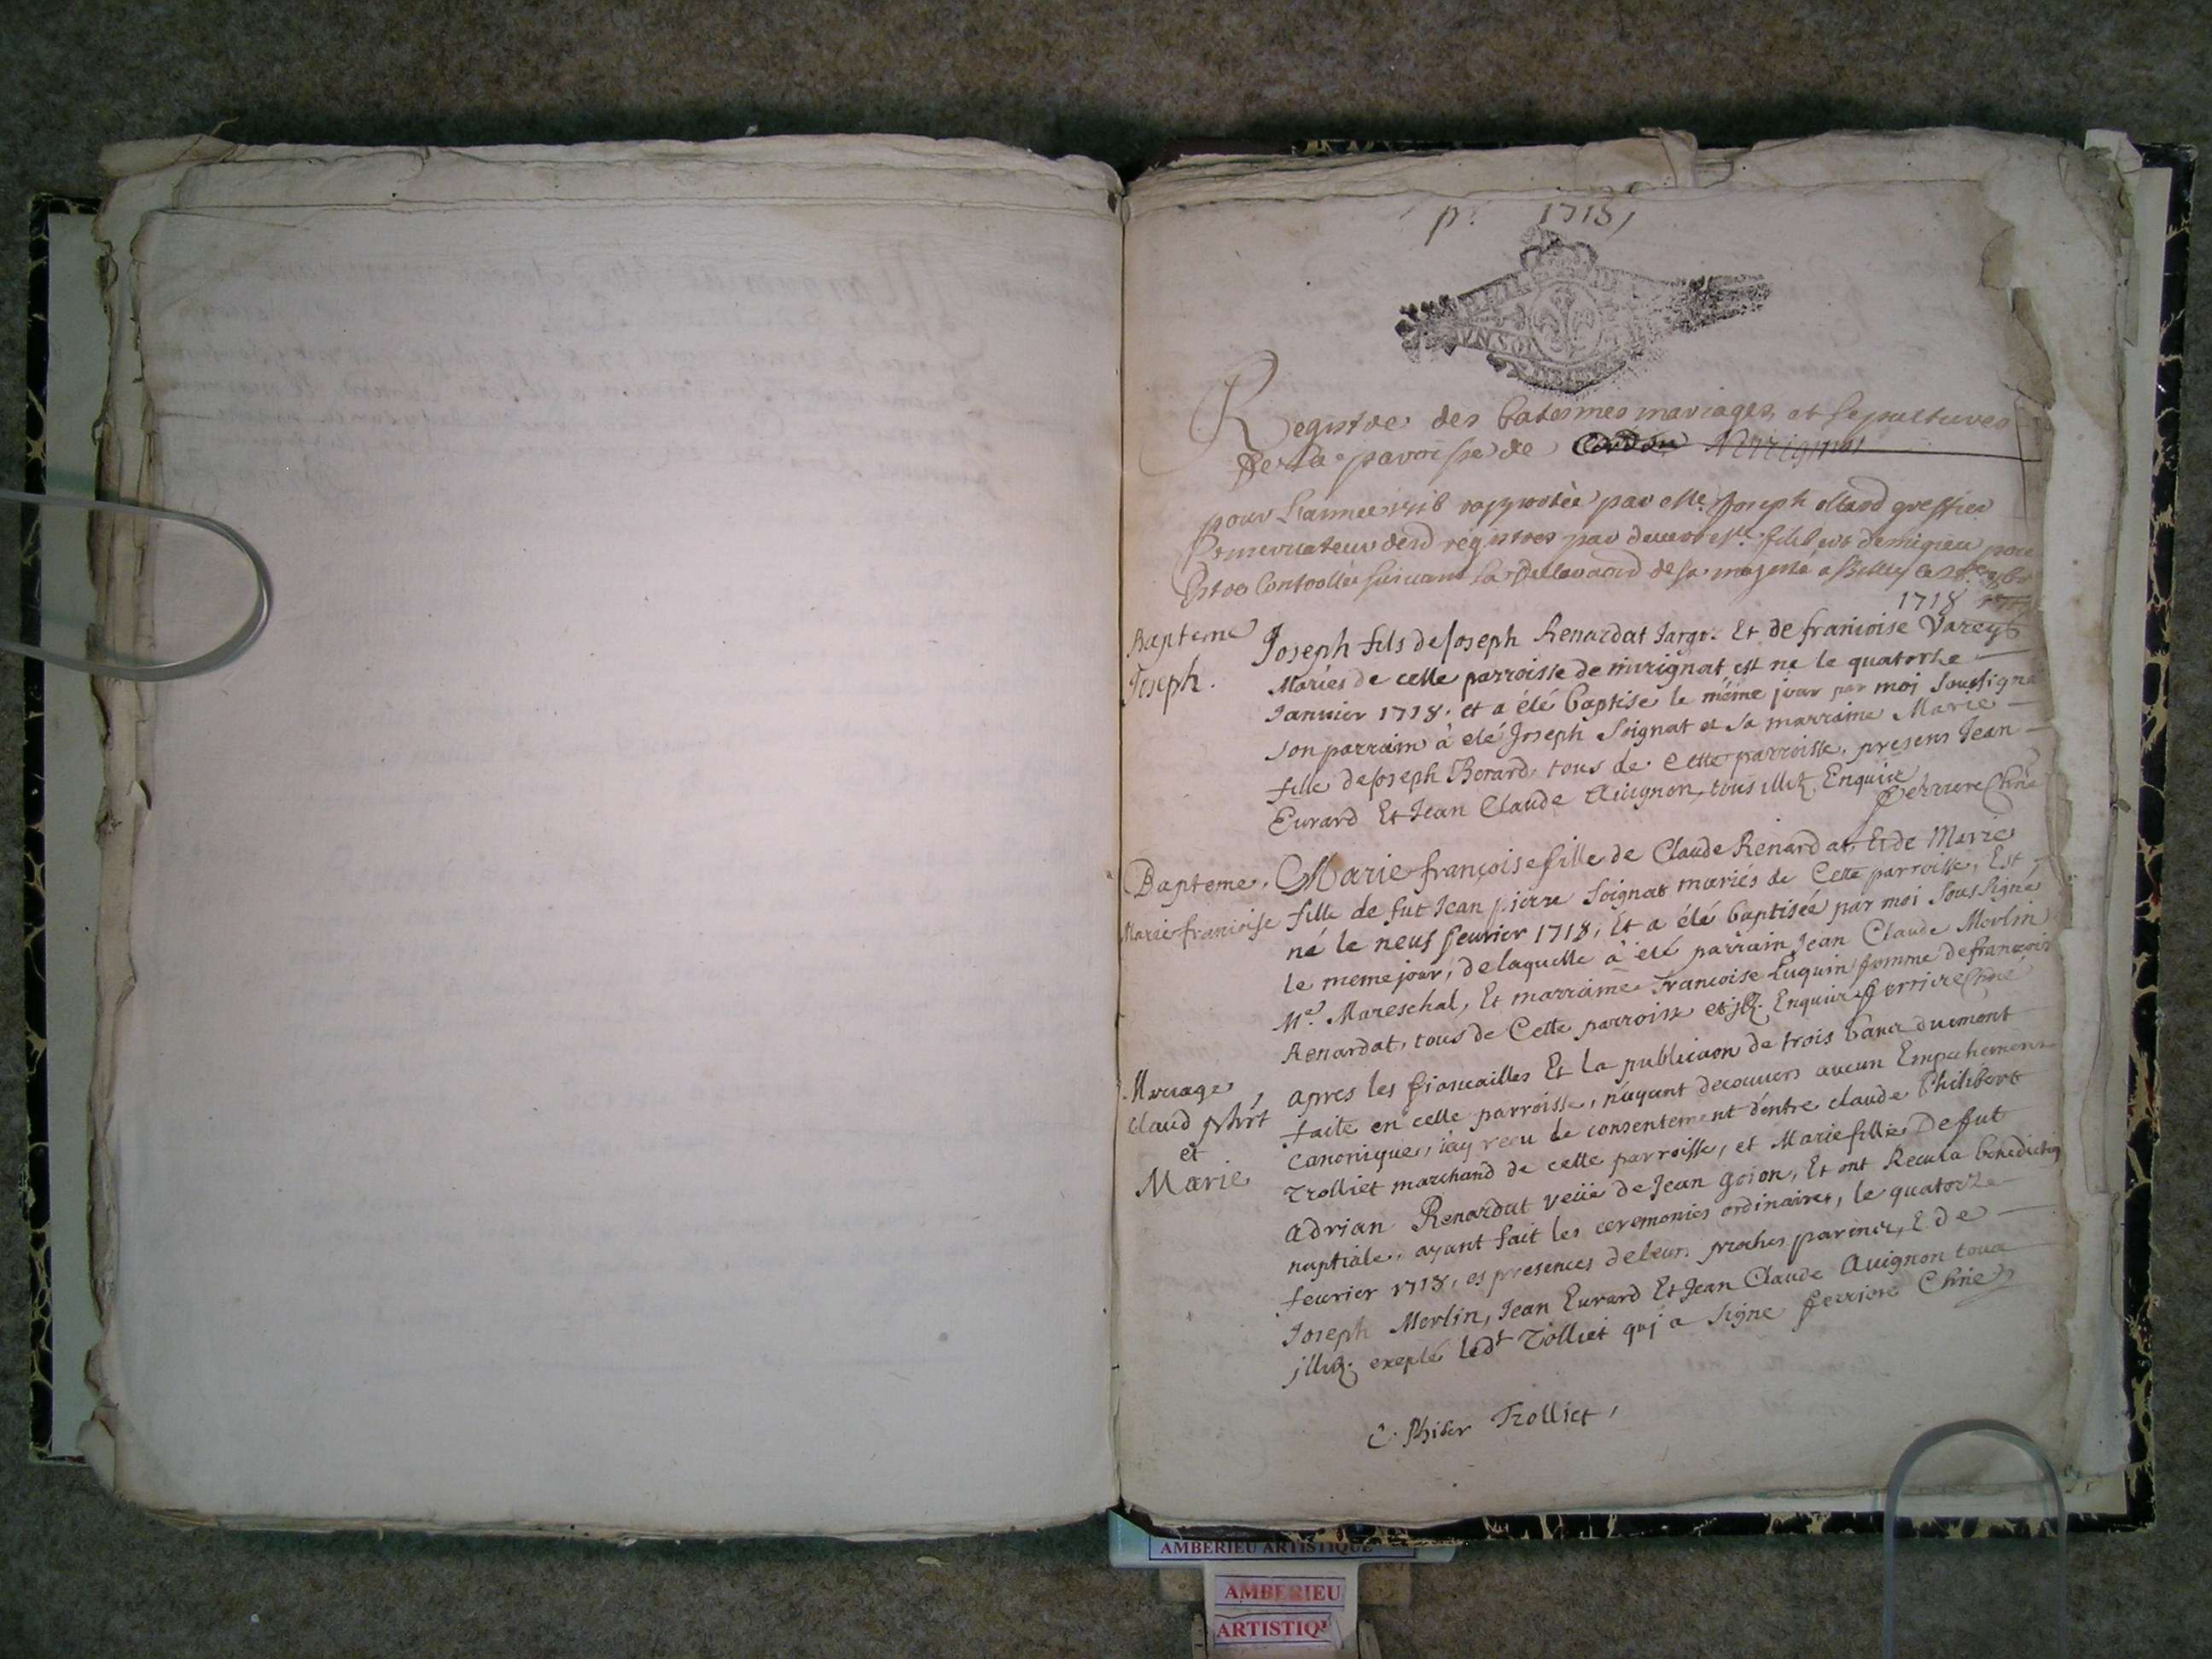 p. 1718,
UN SOL
Registre des batesmes mariages et sepultures
De la paroisse de Cordon Nirignat
pour L'annee 1718 rapportèe par Mre. Joseph greffier
Conservateur desd registres par devers
Estre Controllée suivant la de sa majesté a Belley
1718
Bapteme
Joseph.
Joseph fils de Joseph Renardat Et de francoise Vareyt
Mariés de celle parroisse de nirignat est ne le quatorse
Januier 1718. et a été baptise le même jour par moi soussigné
son parrain à eté Joseph Soignat et sa marraine Marie
fille de Joseph Berard, tous de cette parroisse. presens Jean
Eurard Et Jean Claude Auignon, tous illit. Enquis
Ferriere Chne
Bapteme,
Marie francoise
Marie françoise fille de Claude Renardat, Et de Marie
fille de fut Jean pierre Soignat mariés de Cette parroisse, Est
né le neuf feurier 1718, Et a été baptisée par moi sous signé
le meme jour, de laquelle à eté parrain Jean Claude Merlin
Me. Mareschal, Et marraine Francoise Luquin femme de francois
Renardat, tous de Cette parroisse et Enquis ferriere Chne
Mariage,
Claud phrt
et
Marie
apres les fiancailles Et la publicaon de trois bancz duemont
faite en celle parroisse, n'ayant decouuers aucun Empechement
Canonique, iay receu le consentement d'entre claude Philibert
Trolliet marchand de celle parroisse, et Marie fille De fut
Adrian Renardat veüe de Jean Goion, Et ont Receu la benediction
nuptiale, ayant fait les ceremonies ordinaires, le quatorze
feurier 1718, es presences de leurs proches parentz, E de
Joseph Merlin, Jean Eurard Et Jean Claude Auignon tous
illit. exepté led't Trolliet qui a signe ferriere Chne
C. Phiber Trolliet,
AMBERIEU ARTISTIQUE
AMBERIEU
ARTISTIQU